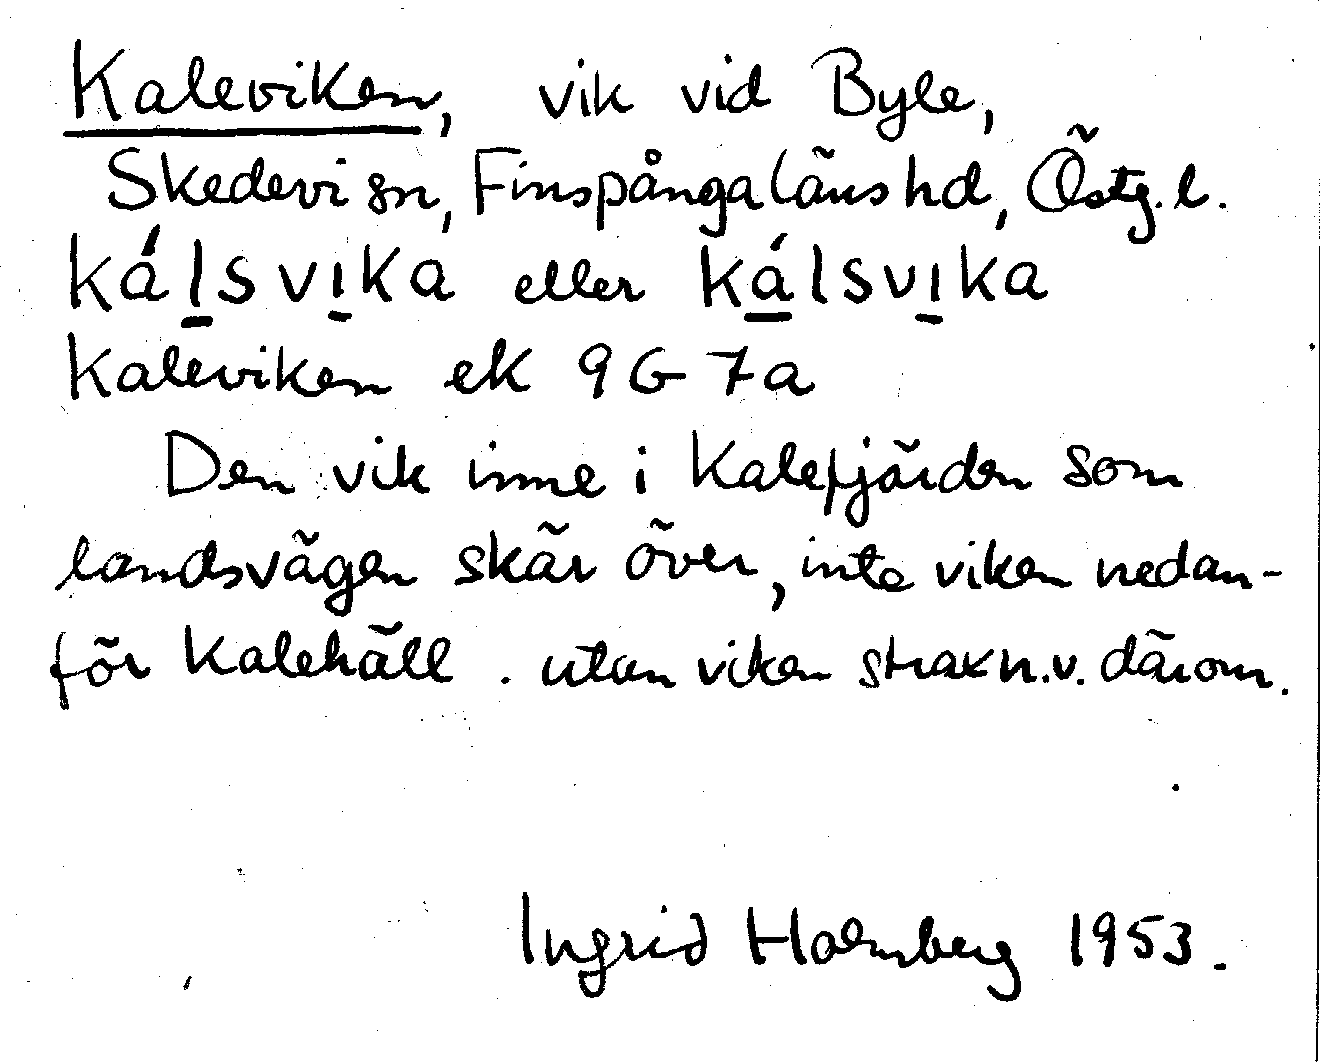 Kaleviken, vik vid Byle,
Skedevi sn, Finspångaläns hd, Östg. l.
kál̲svı̲ka eller ká̲lsvı̲ka
Kaleviken ek 9G 7a
Den vik inne i Kalefjärden som
landsvägen skär över, inte viken nedan-
för Kalehäll. utan viken strax n.v. därom.
Ingrid Holmberg 1953.